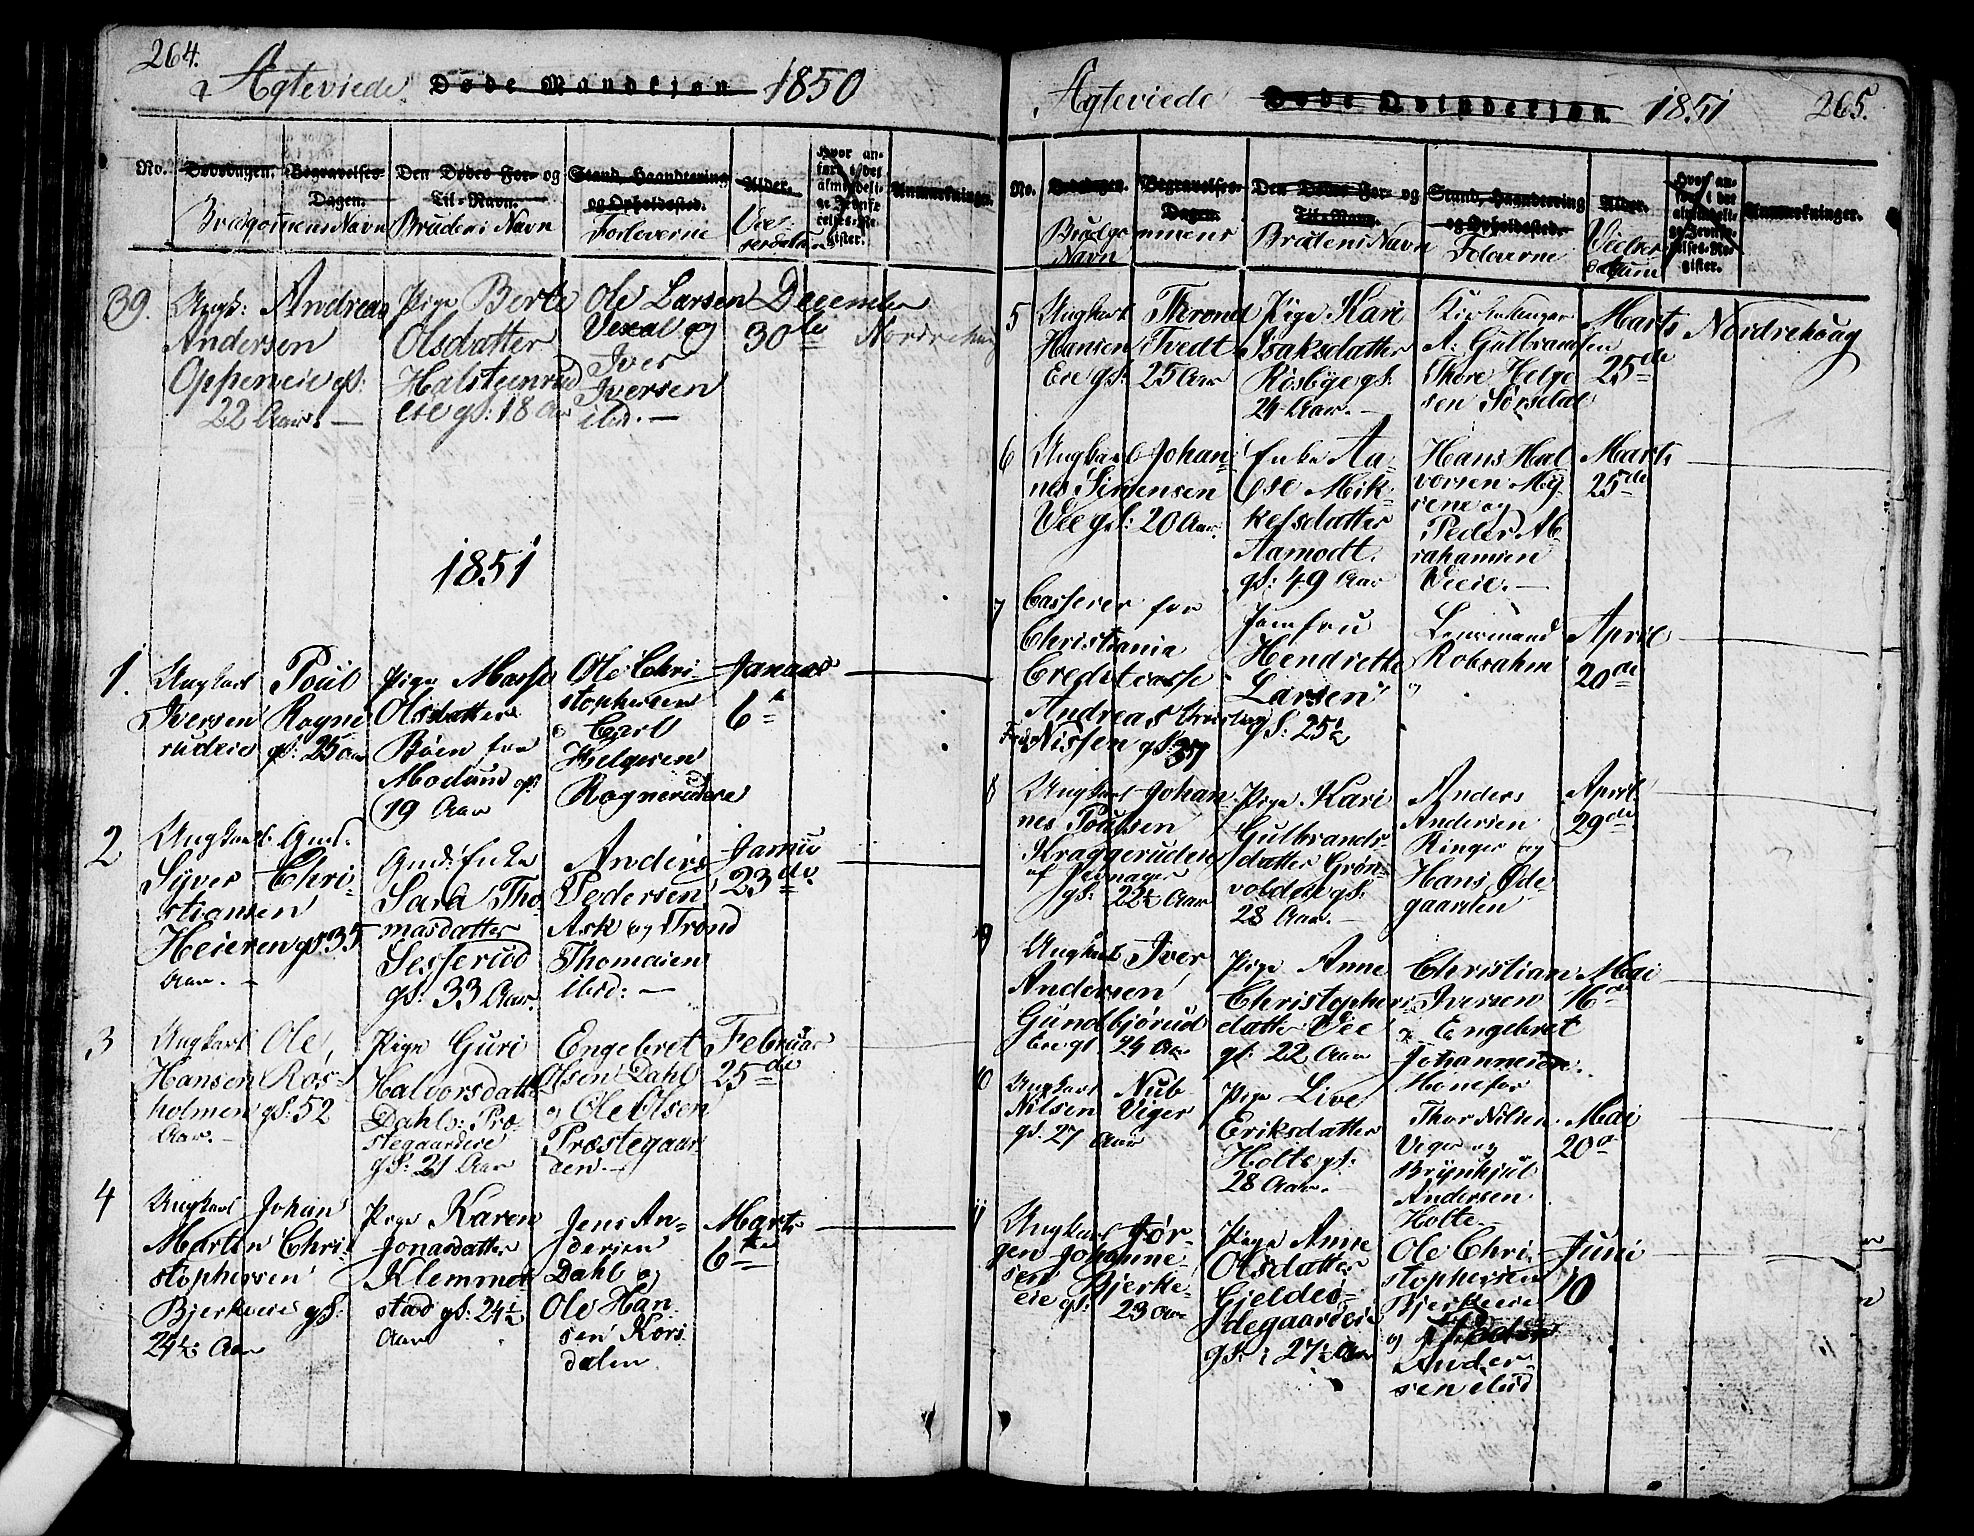 264.
Ægteviede Døde Mandkjøn 1850
No. Dødsdagen. Begravelses-Dagen. Den Dødes For- og Til-Navn. Stand, Haandtering og Opholdssted. Alder. Hvor anført i det almindelige Jevnførelses-Register. Anmærkninger.
Brudgommens Navn Brudens Navn Forloverne
39. Ungk: Andreas
Andersen
Oppeneie gl:
22 Aar. —
Pige Berte
Olsdatter
Halsteenrud
eie gl: 18 Aar
Ole Larsen
Vexal og
Iver
Iversen
ibd. —
December
30de
Nordrehaug
1851
1. Ungkarl Poul
Iversen Rogne
rudeie gl: 25 Aar
Pige Masse
Olsdatter
Bøen fra
Modum gl:
19 Aar
Ole Chri
stophersen
Carl
Helgesen
Rognerudeie
Januar
6te
2 Ungkarl Gud.
Syver Chri-
stiansen
Heieren gl 35
Aar. —
Gud: Enke
Sara Tho-
masdatter
Sesserud
gl: 33 Aar.
Anders
Pedersen
Ask og Trond
Thomasen
ibid: —
Januar
23de
3 Ungkarl Ole
Hansen Ros-
holmen gl: 52
Aar. —
Pige Guri
Halvorsdatter
Dahls: Præ-
stegaardeie
gl: 21 Aar
Engebret
Olsen Dahl
og Ole Olsen
Præstegaar-
den —
Februar
25de
4 Ungkarl Johan
Martin Chri-
stophersen
Bjerkeeie gl:
24½ Aar
Pige Karen
Jonasdatter
Klemmet
stad gl: 24½
Aar
Jens An-
dersen
Dahl og
Ole Han-
sen Kors
dalen
Marts
6te
Ægteviede Døde Qvindekjøn. 1851 265.
No. Dødsdagen. Begravelses-Dagen. Den Dødes For- og Til-Navn. Stand, Haandtering og Opholdssted. Alder. Hvor anført i det almindelige Jevnførelses-Register. Anmærkninger.
Brudgommens Navn Brudens Navn
5 Ungkarl Thrond
Hansen Tvedt
Eie gl: 25 Aar
Pige Kari
Isaksdatter
Røsbye gl.
24 Aar. —
Kirkesanger
A: Gulbrandsen
Thore Helge
sen Sørsdal
Marts
25de
Nordrehoug
6 Ungkarl Johan-
nes Simensen
Vee gl: 20 Aar.
Enke Aa-
se Mik-
kelsdatter
Aamodt.
gl: 49 Aar
Hans Hal
vorsen My-
rene og
Peder Ab-
rahamsen
Veeie. —
Marts
25de
7 Casserer for
Christiania
Creditcasse
Andreas
Nissen gl:
Jomfru
Hendrette
Larsen
gl: 25½
Lensmand
Robsahm
April
20de
8 Ungkarl Johan
nes Poulsen
Kraggerudeie
gl: 22½ Aar
Pige Kari
Gulbrands-
datter Grøn-
voldeie gl:
28 Aar. —
Anders
Andersen
Ringer og
Hans Øde-
gaarden
April
29de
9 Ungkarl Iver
Andersen
Gundbjørud
Eie gl 24 Aar
Pige Anne
Christophers
datter Vee
gl: 22 Aar
Christian
Iversen
og Engebret
Johannesen
Hønefos
Mai
16de
10 Ungkarl Nub
Nilsen Viger
gl. 27 Aar
Pige Live
Eriksdatter
Holte gl:
28 Aar. —
Thor Nilsen
Viger og
Brynhjul
Andersen
Holte
Mai
20de
11 Ungkarl Jør-
gen Johanne-
sen Bjerke-
eie gl: 23 Aar
Pige Anne
Olsdatter
Gjeldø-
degaardeie
gl: 27½ Aar
Ole Chri
stophersen
Bjerkeeie
og Peder
Ander-
sen ibid
Juni
10